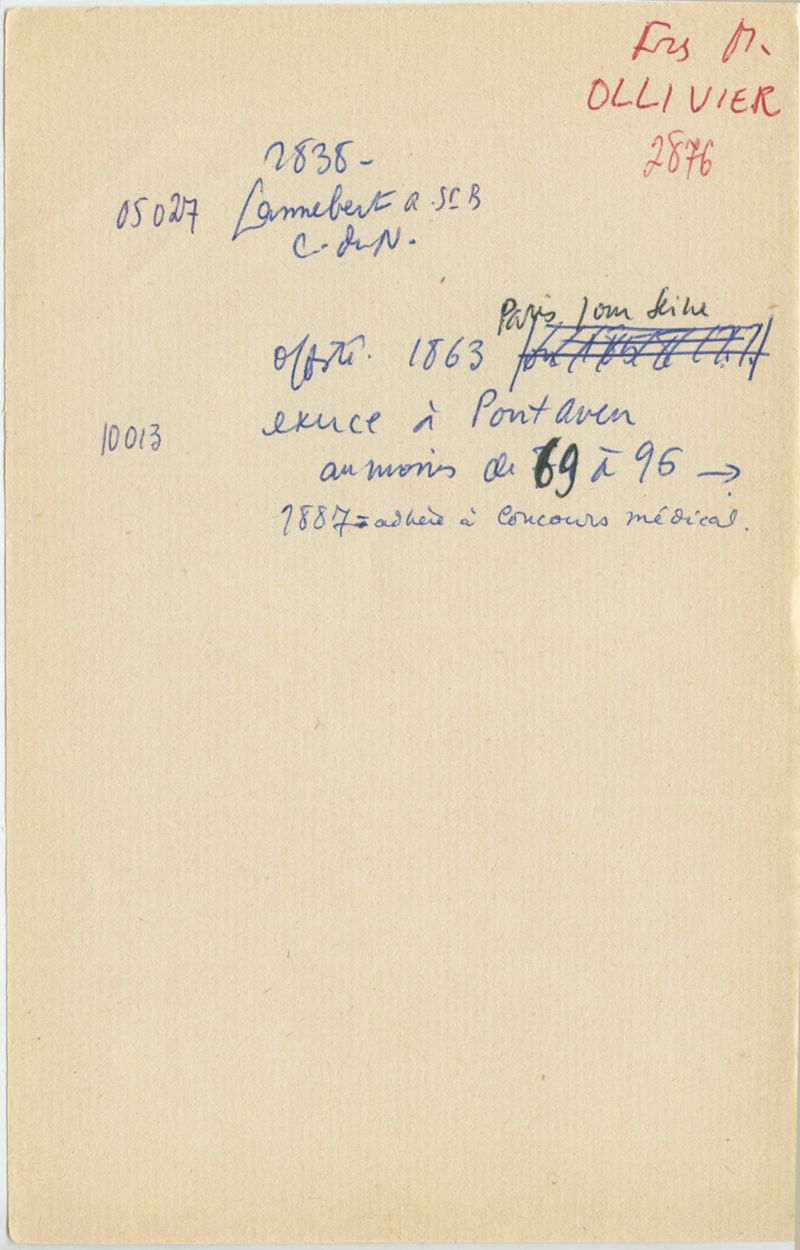 Frs M.
OLLIVIER
2876
1838-
05027 Lannebert a. St B
C. du N.
Paris Jour Seine
offsté. 1863
10013 exerce à Pont Aven
au moins de 69 à 96 →
1887 = adhère à Concours médical.